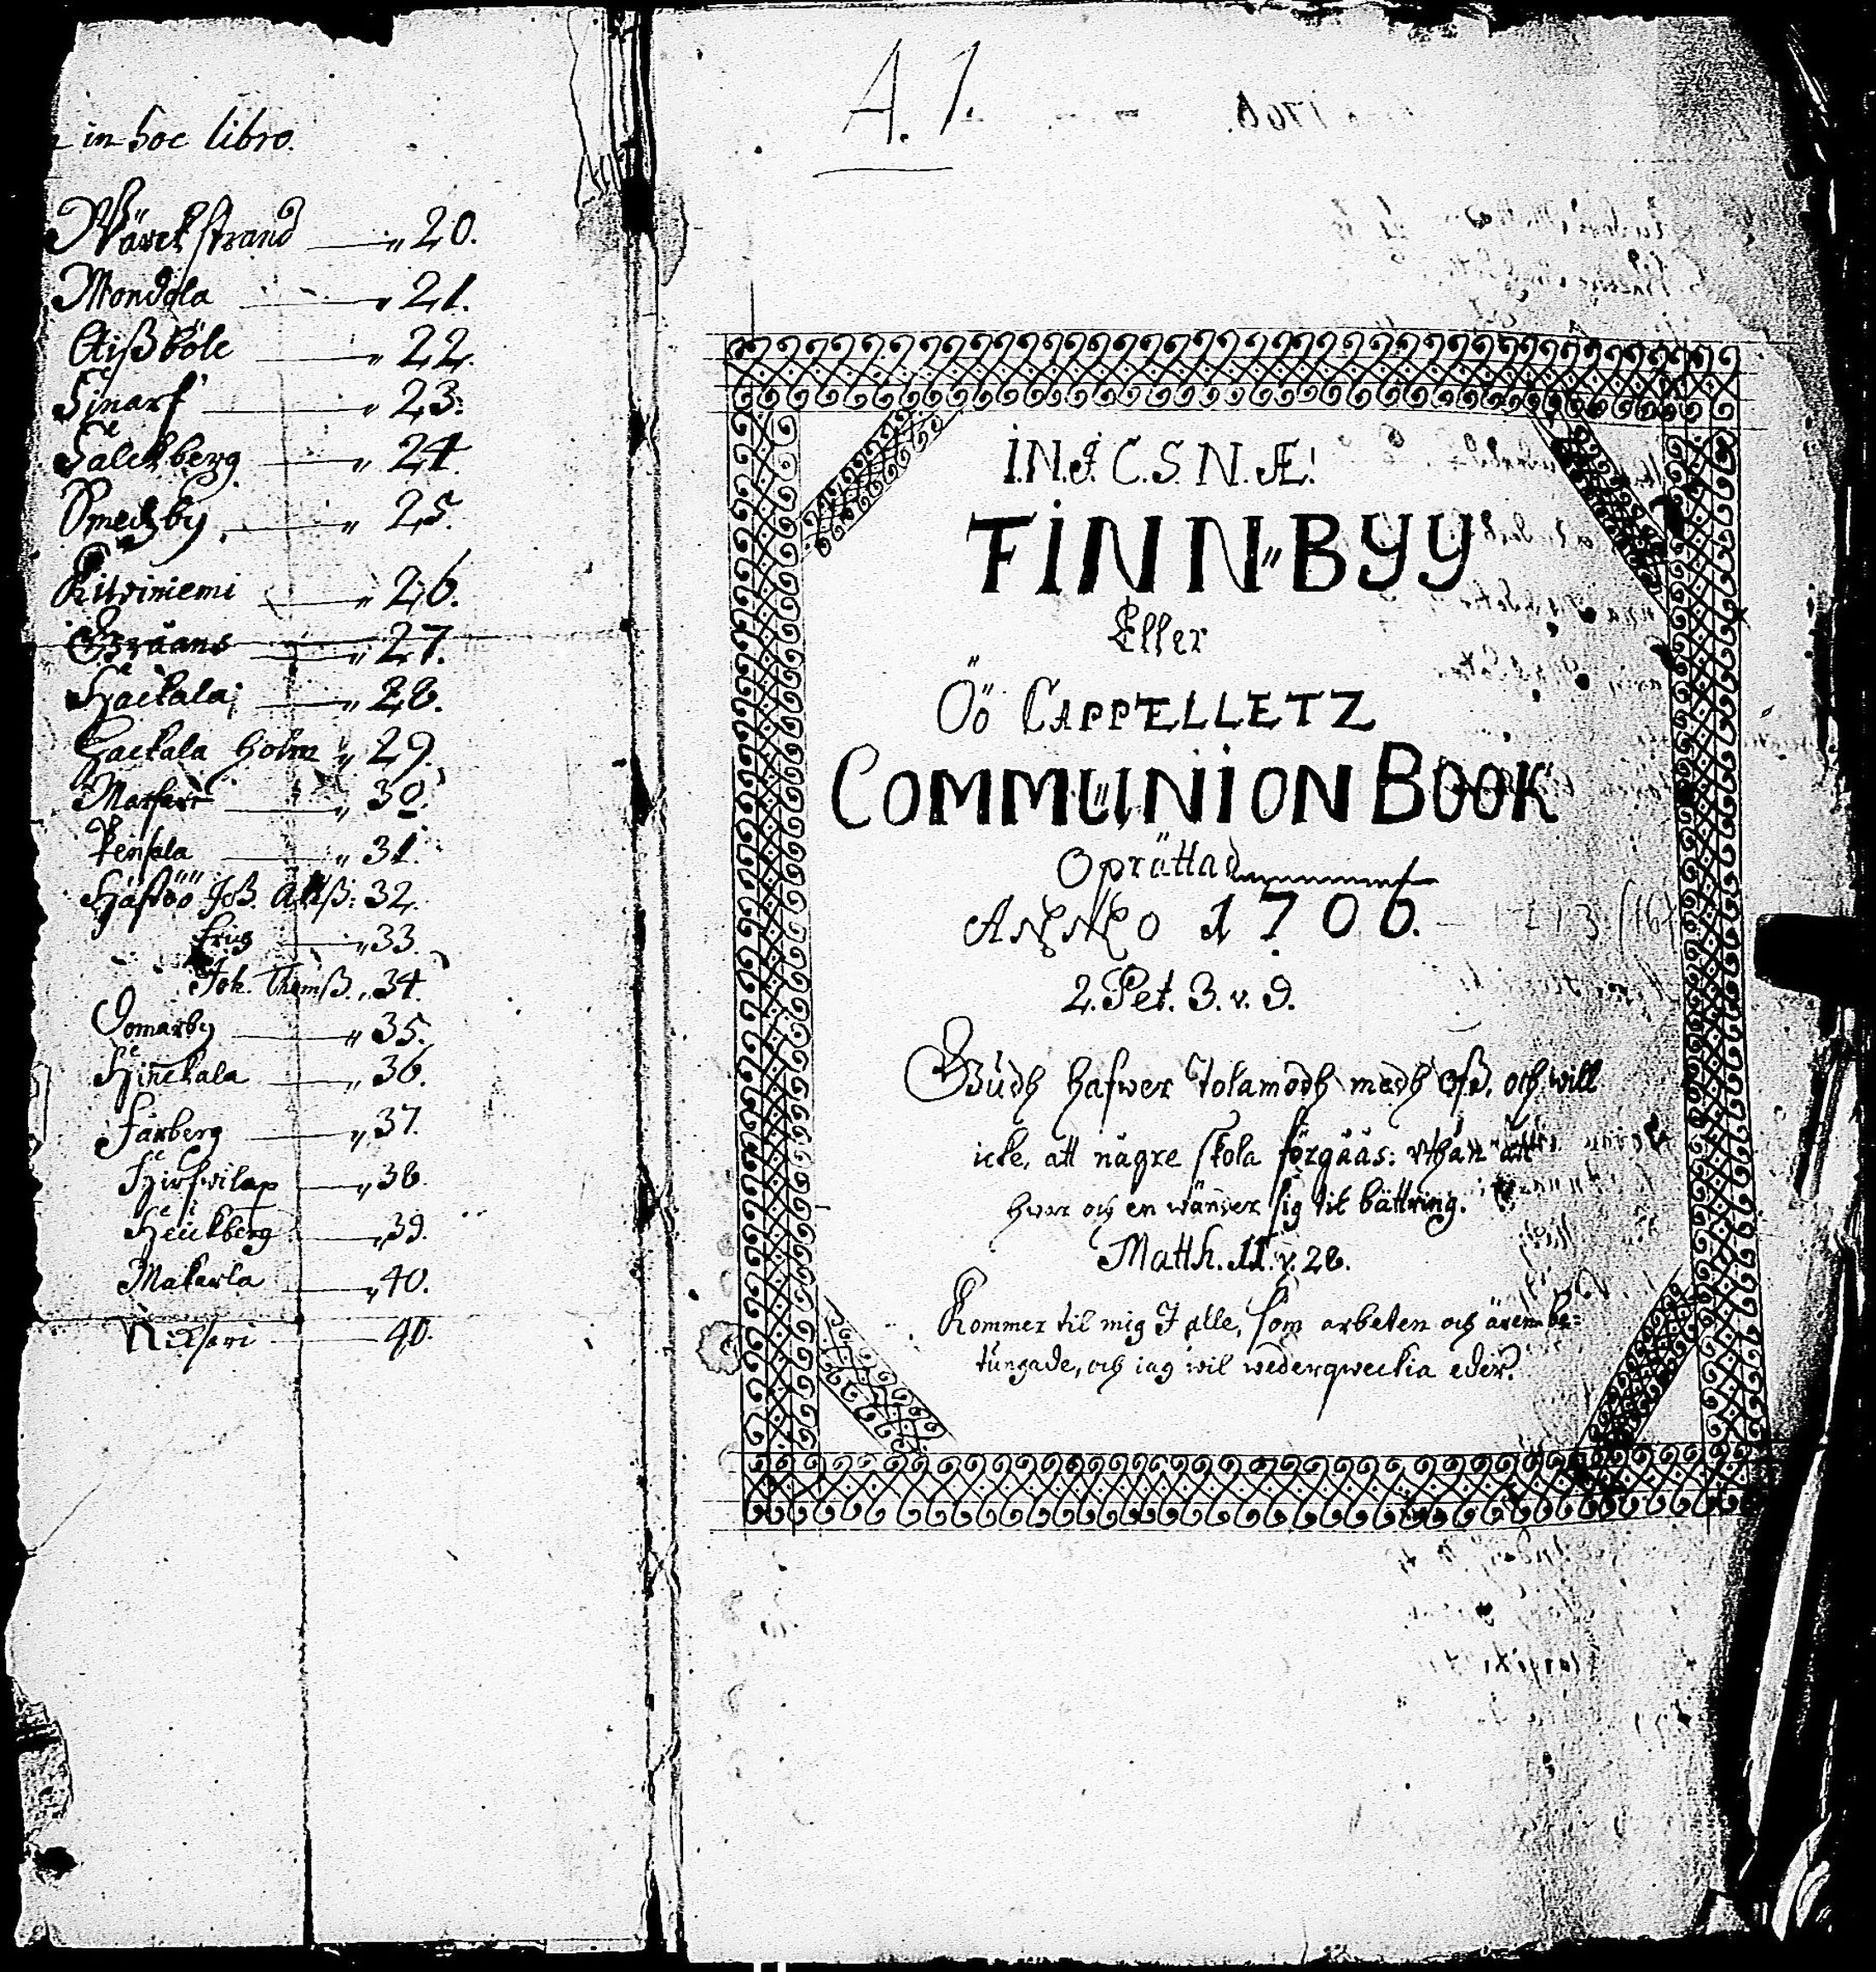 in hoc libro.
Wärckstrand „ 20.
Mondola „ 21.
Aißböle „ 22.
„ 23.
Falckberg „ 24.
Smedzby „ 25.
Kitviniemi „ 26.
Gråans „ 27.
Hackala „ 28.
Hackala holm „ 29.
„ 30.
Pensala „ 31.
Håstöö Joh. 32.
Erics „ 33.
Joh. Thomß. „ 34.
Gomarby „ 35.
Hinckala „ 36.
Färberg „ 37.
„ 38.
„ 39.
Makarla „ 40.
40.
A. 1.
I.N.J.C.S.N.Æ!
FINN„BYY
Eller
Öö CAPPELLETZ
COMMUNION BOOK
Oprättad
ANNO 1706.
2. Pet. 3. v. 9.
Gudh hafwer tolamodh medh oß, och will
icke, att någre skola förgåås: vthan att
hwar och en wänder sig til bättring.
Matth. 11. v. 28.
Kommer til mig I alle, som arbeten och ären be=
tungade, och iag wil wederqweckia eder.